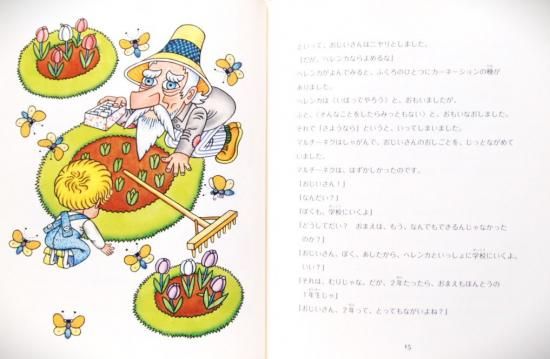 といって、おじいさんはニヤリとしました。
「だが、ヘレンカならよめるな」
ヘレンカがよんでみると、ふくろのひとつにカーネーションの種が
ありました。
ヘレンカは〈いばってやろう〉と、おもいましたが、
ふと、〈そんなことをしたらみっともない〉と、おもいなおしました。
それで「さようなら」というと、いってしまいました。
マルチーネクはしゃがんで、おじいさんのおしごとを、じっとながめて
いました。
マルチーネクは、はずかしかったのです。
「おじいさん!」
「なんだい?」
「ぼくも、学校にいくよ」
「どうしてだい? おまえは、もう、なんでもできるんじゃなかった
のか?」
「おじいさん、ぼく、あしたから、ヘレンカといっしょに学校にいくよ。
いい?」
「それは、むりじゃな。だが、2年たったら、おまえもほんとうの
1年生じゃ」
「おじいさん、2年って、とってもながいよね?」
15